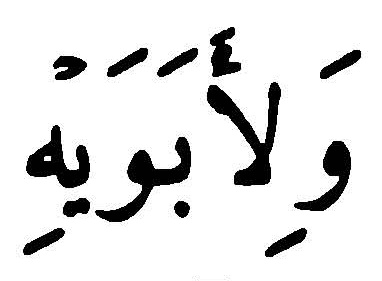 وَلِأَبَوَيْهِ